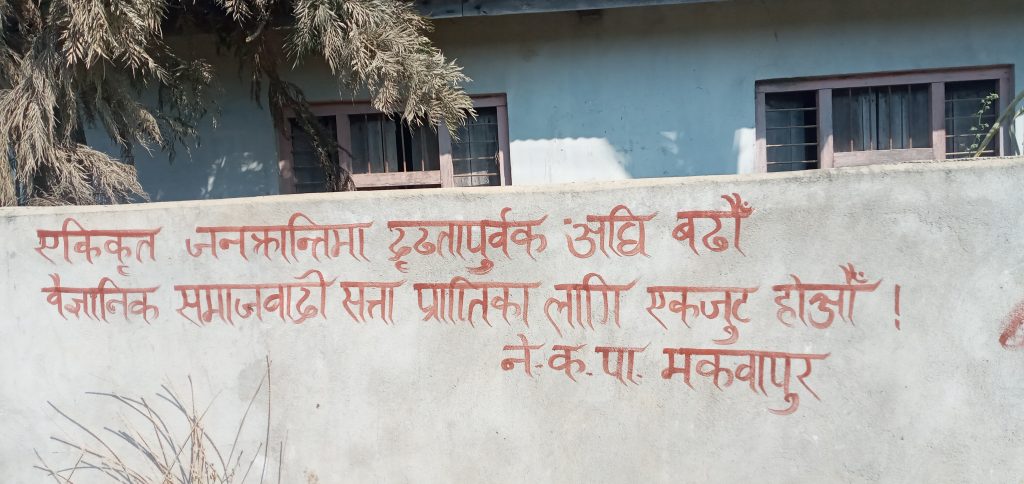 एकिकृत जनक्रान्तिमा दृढतापुर्वक अघि बढौँ
वैज्ञानिक समाजवादी सत्ता प्राप्तिका लागि एकजुट होऔँ !
ने.क.पा. मकवापुर